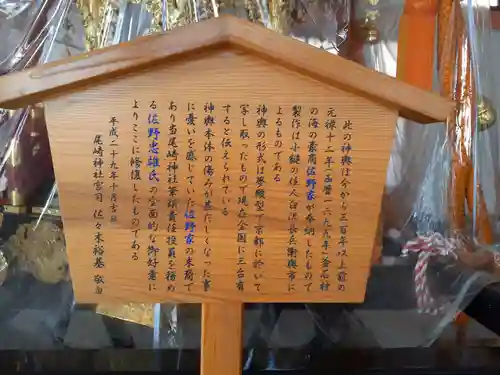 此の神輿は今から三百年以上前の
元禄十二年(西暦一六九八年)釜石村
の海の豪商佐野家が奉納したもので
製作は小鎚の住人
よるものである
神輿の形式は夢殿型で京都に於いて
写し取ったもので現在全国に三台有
すると伝えられている
神輿本体の傷みが甚だしくなった事
に憂いを感じていた佐野家の末裔で
あり当尾崎神社筆頭責任役員を務め
る佐野忠雄氏の全面的な御好意に
よりここに修復したものである
平成二十九年十月十日
尾崎神社宮司 佐々木裕基 敬白